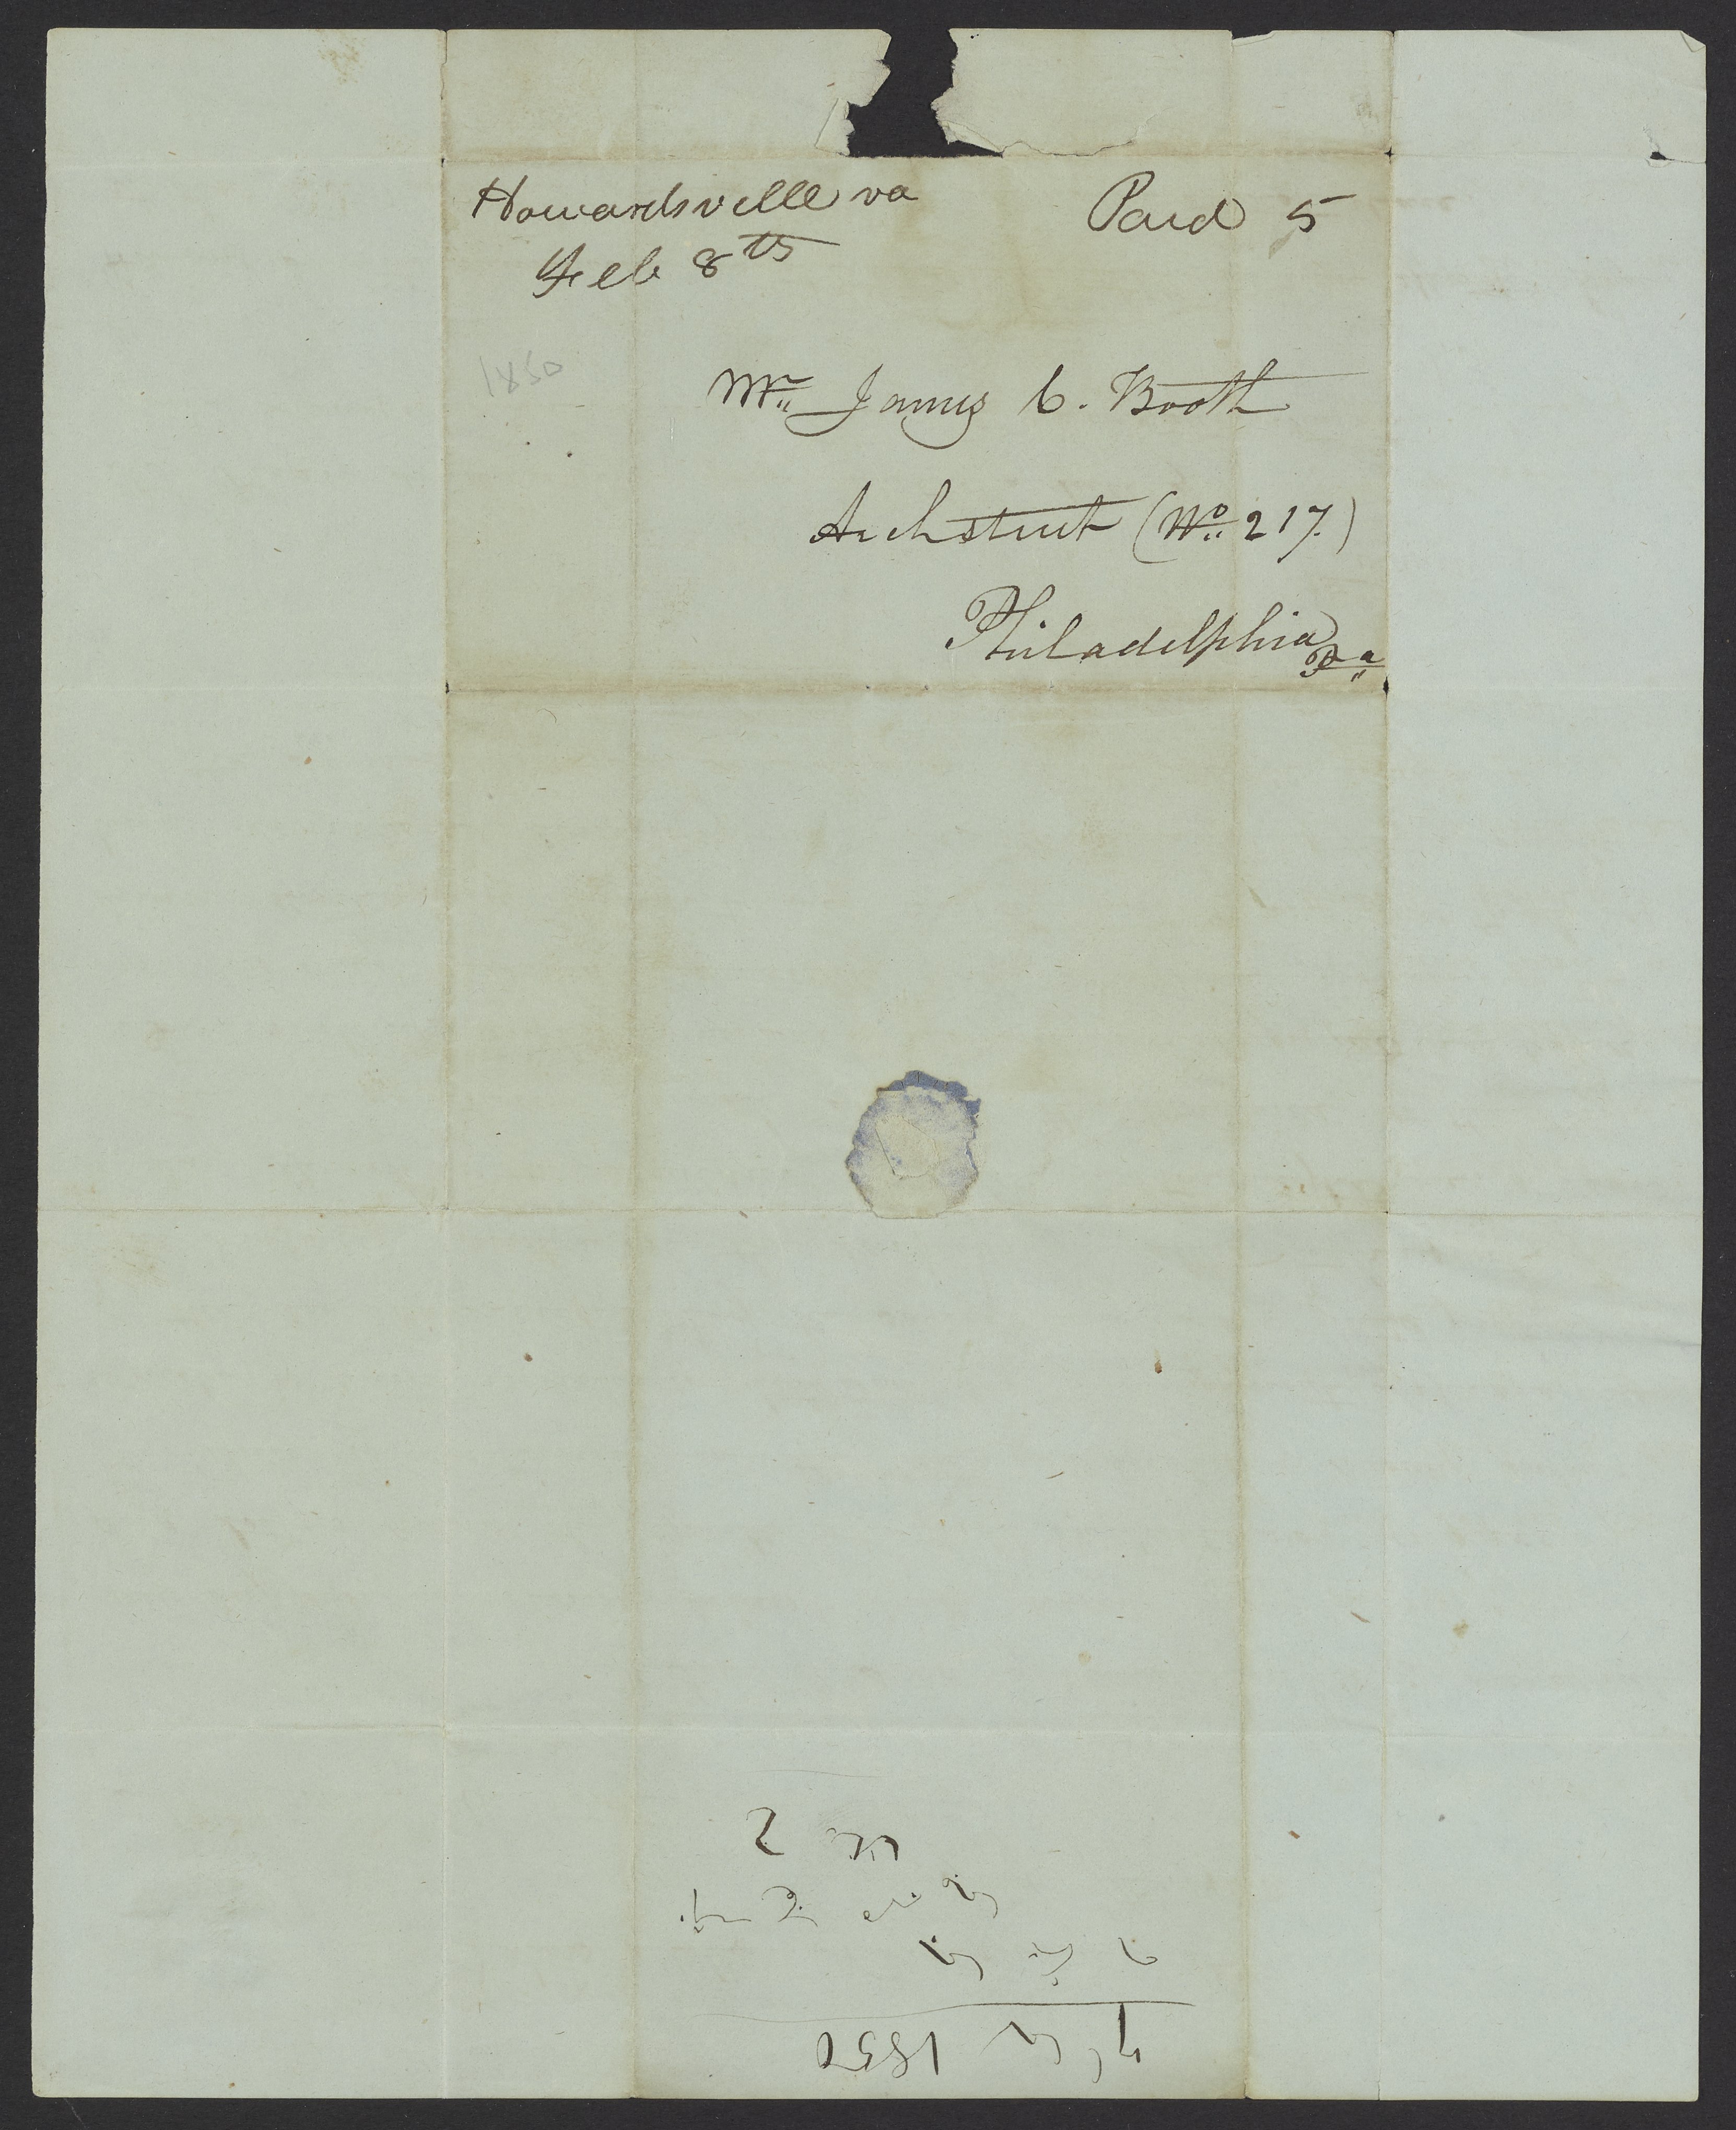 Howardsville va
Paid 5
Feb 8th
1850
Mr. James C. Booth
Arch street (No. 217.)
Philadelphia
Pa
1850